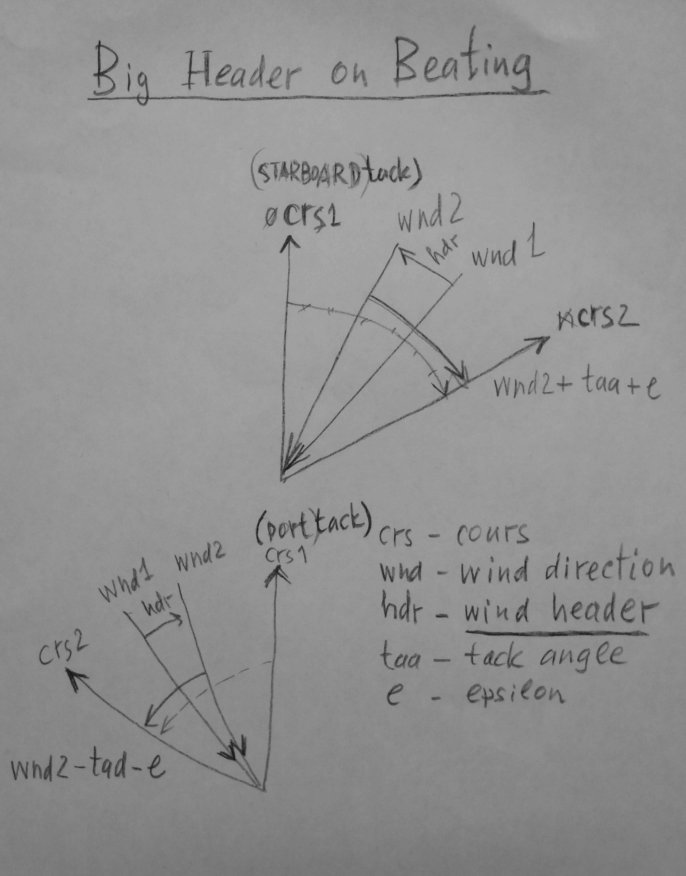 Big Header on Beating
(STARBOARD tack)
crs1
wnd2
hdr
wnd1
crs2
wnd2+taa+e
(port tack)
crs1
wnd2
wnd1
hdr
crs2
wnd2-taa-e
crs - cours
wnd - wind direction
hdr - wind header
taa - tack anglee
e - epsilon